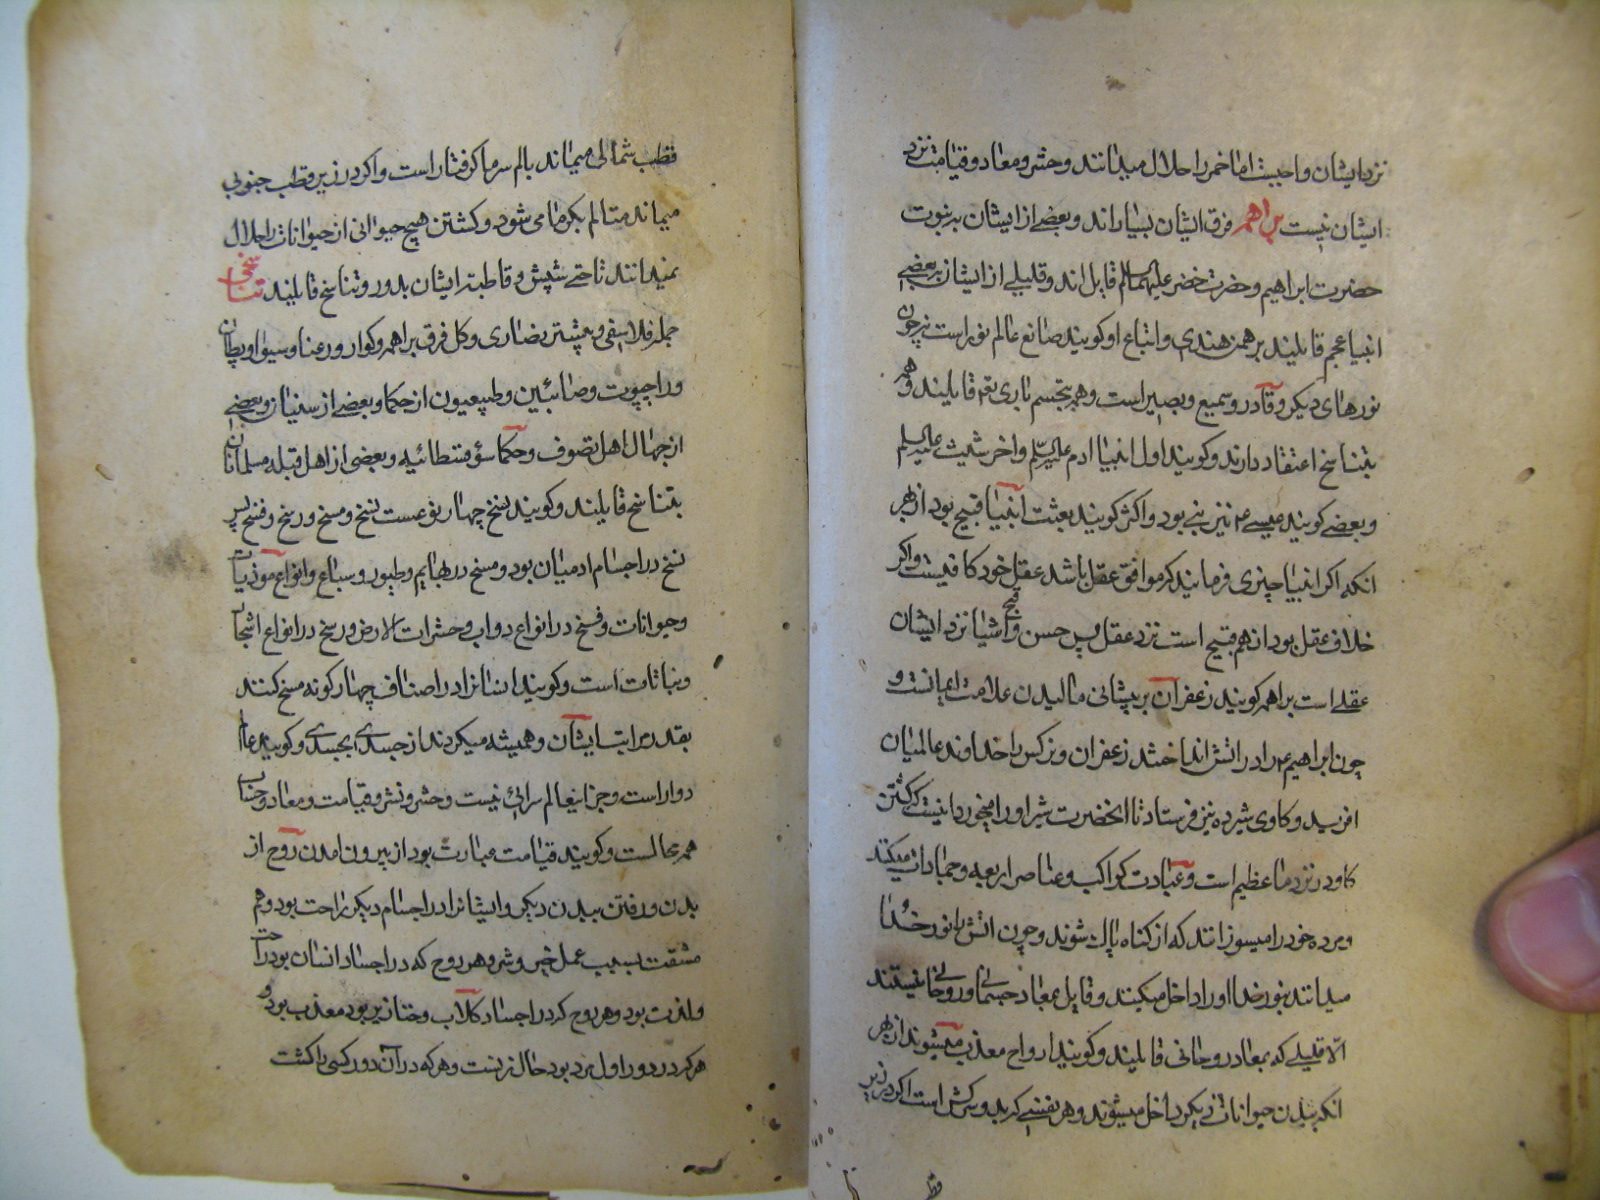 نزد ایشان واجبست اما خمر را حلال میدانند و حشر و معاد و قیامت نزد
ایشان نیست براهمه فرق ایشان بسیاراند و بعضے از ایشان بر نبوت
حضرت ابراهیم و حضرت خضر علیهما السلام قایل اند و قلیلے از ایشان بر بعضے
انبیا عجم قایلیند برهمن هندی و اتباع او کویند صانع عالم نور است نه چون
نورهای دیکر و قادر و سمیع و بصیر است و هم بتجسم باری تع قایلیند و هم
بتناسخ اعتقاد دارند و کویند اول انبیا ادم علیه السلم و اخر شیث علیه السلم
و بعضے کویند عیسے ع نیز نبے بود و اکثر کویند بعثت انبیا قبیح بود از بهر
انکه اکر انبیا چیزی فرمایند که موافق عقل باشد عقل خود کافیست و اکر
خلاف عقل بود ان هم قبیح است نزد عقل پس حسن و قبح اشیا نزد ایشان
عقلے است براهمه کویند زعفران بر پیشانی مالیدن علامت ایمانست و
چون ابراهیم ع را در اتش انداختند زعفران و نرکس را خداوند عالمیان
افرید و کاوی شیرده نیز فرستاد تا انحضرت شیر او را میخورد اینست که کشتن
کاو در نزد ما عظیم است و عبادت کواکب و عناصر اربعه و جمادات میکنند
و مرده خود را میسوزانند که از کناه پاک شوند و چون اتش را نور خدا
میدانند بنور خدا او را داخل میکنند و قایل بمعاد جسمانے و روحانے نیستند
الا قلیلے که بمعاد روحانی قایلیند و کویند ارواح معذب میشوند از بهر
انکه ببدن حیوانات دیکر داخل میشوند و هر نفسے که بد و سرکش است اکر در زیر
قط
قطب شمالی میماند بالم سرما کرفتار است و اکر در زیر قطب جنوبی
میماند متالم بکرما می شود و کشتن هیچ حیوانی از حیوانات را حلال
نمیدانند تا حتے شپش و قاطبه ایشان بدور و تناسخ قایلیند تناسخی
جمله فلاسفی و بیشتر نصاری و کل فرق براهمه و کوار و رعنا و سیوا و پتان
و راجپوت و صائبین و طبیعیون از حکما و بعضے از سنیان و بعضے
از جهال اهل تصوف و حکما سوفسطائیه و بعضی از اهل قبله مسلمانان
بتناسخ قایلیند و کویند نسخ چهار نوعست نسخ و مسخ و رسخ و فسخ پس
نسخ در اجسام ادمیان بود و مسخ در بهایم و طیور و سباع و انواع موذیات
و حیوانات و فسخ در انواع دواب و حشرات الارض و رسخ در انواع اشجار
و نباتات است و کویند انسانرا در اصناف چهار کونه مسخ کنند
بقدر مراتب ایشان و همیشه میکردند از جسدی بجسدی و کویند عالم
دوار است و جز این عالم سرائی نیست و حشر و نشر و قیامت و معاد و حساب
همه محالست و کویند قیامت عبارت بود از بیرون امدن روح از
بدن و رفتن ببدن دیکر و ایشانرا در اجسام دیکر راحت بود و هم
مشقت بسبب عمل خیر و شر و هر روح که در اجساد انسان بود راحت
و لذت بود و هر روح که در اجساد کلاب و خنازیر بود معذب بود و
هر که در دور اول مرد بود حال زنست و هر که در آن دور کسی را کشت